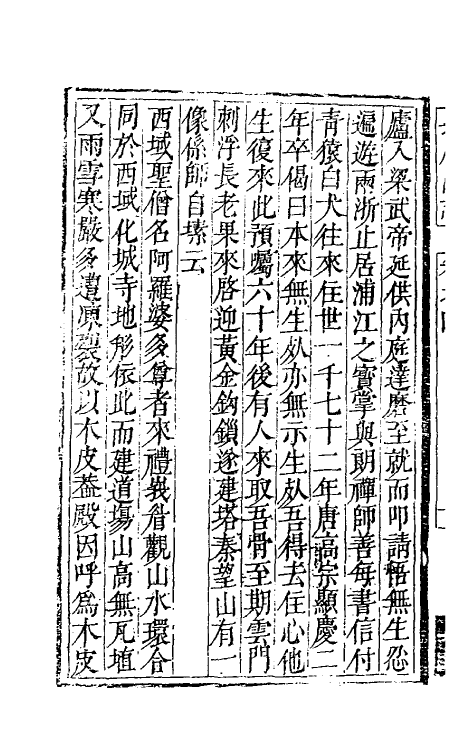 廬入梁武帝延供內庭達磨至就而叩請悟無生忍
遍遊兩浙止居浦江之寶掌與朗禪師善每書信付
青猿白犬往來住世一千七十二年唐高宗顯慶二
年卒偈曰本來無生死亦無示生死吾得去住心他
生復來此預囑六十年後有人來取吾骨至期雲門
刺浮長老果來啓迎黃金鈎鎖遂建塔秦望山有一
像係師自塐云
西域聖僧名阿羅婆多尊者來禮峩眉觀山水環合
同於西域化城寺地形依此而建道場山高無瓦埴
又雨雪寒嚴多遭凍裂故以木皮葢殿因呼爲木皮